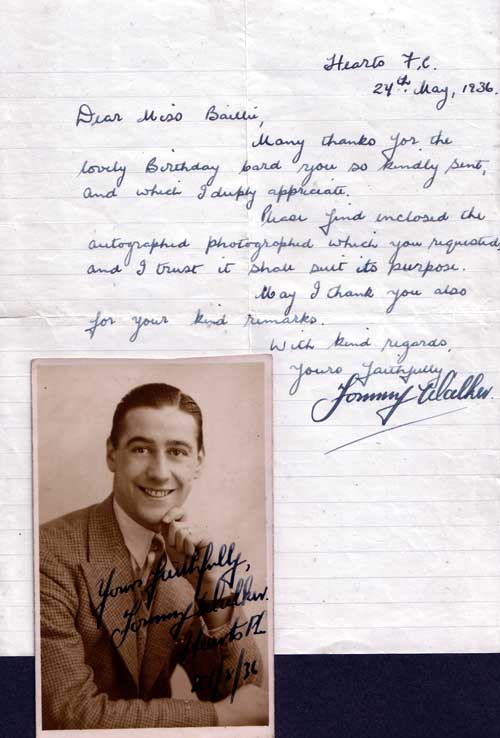 Hearts F.C.
24th May, 1936.
Dear Miss Baillie,
Many thanks for the
lovely Birthday card you so kindly sent,
and which I deeply appriciate.
Please find inclosed the
autographed photographed which you requested,
and I trust it shall suit its purpose.
May I thank you also
for your kind remarks.
With kind regards,
Yours faithfully
Tommy Walker.
Yours faithfully,
Tommy Walker.
Hearts F.C.
/36